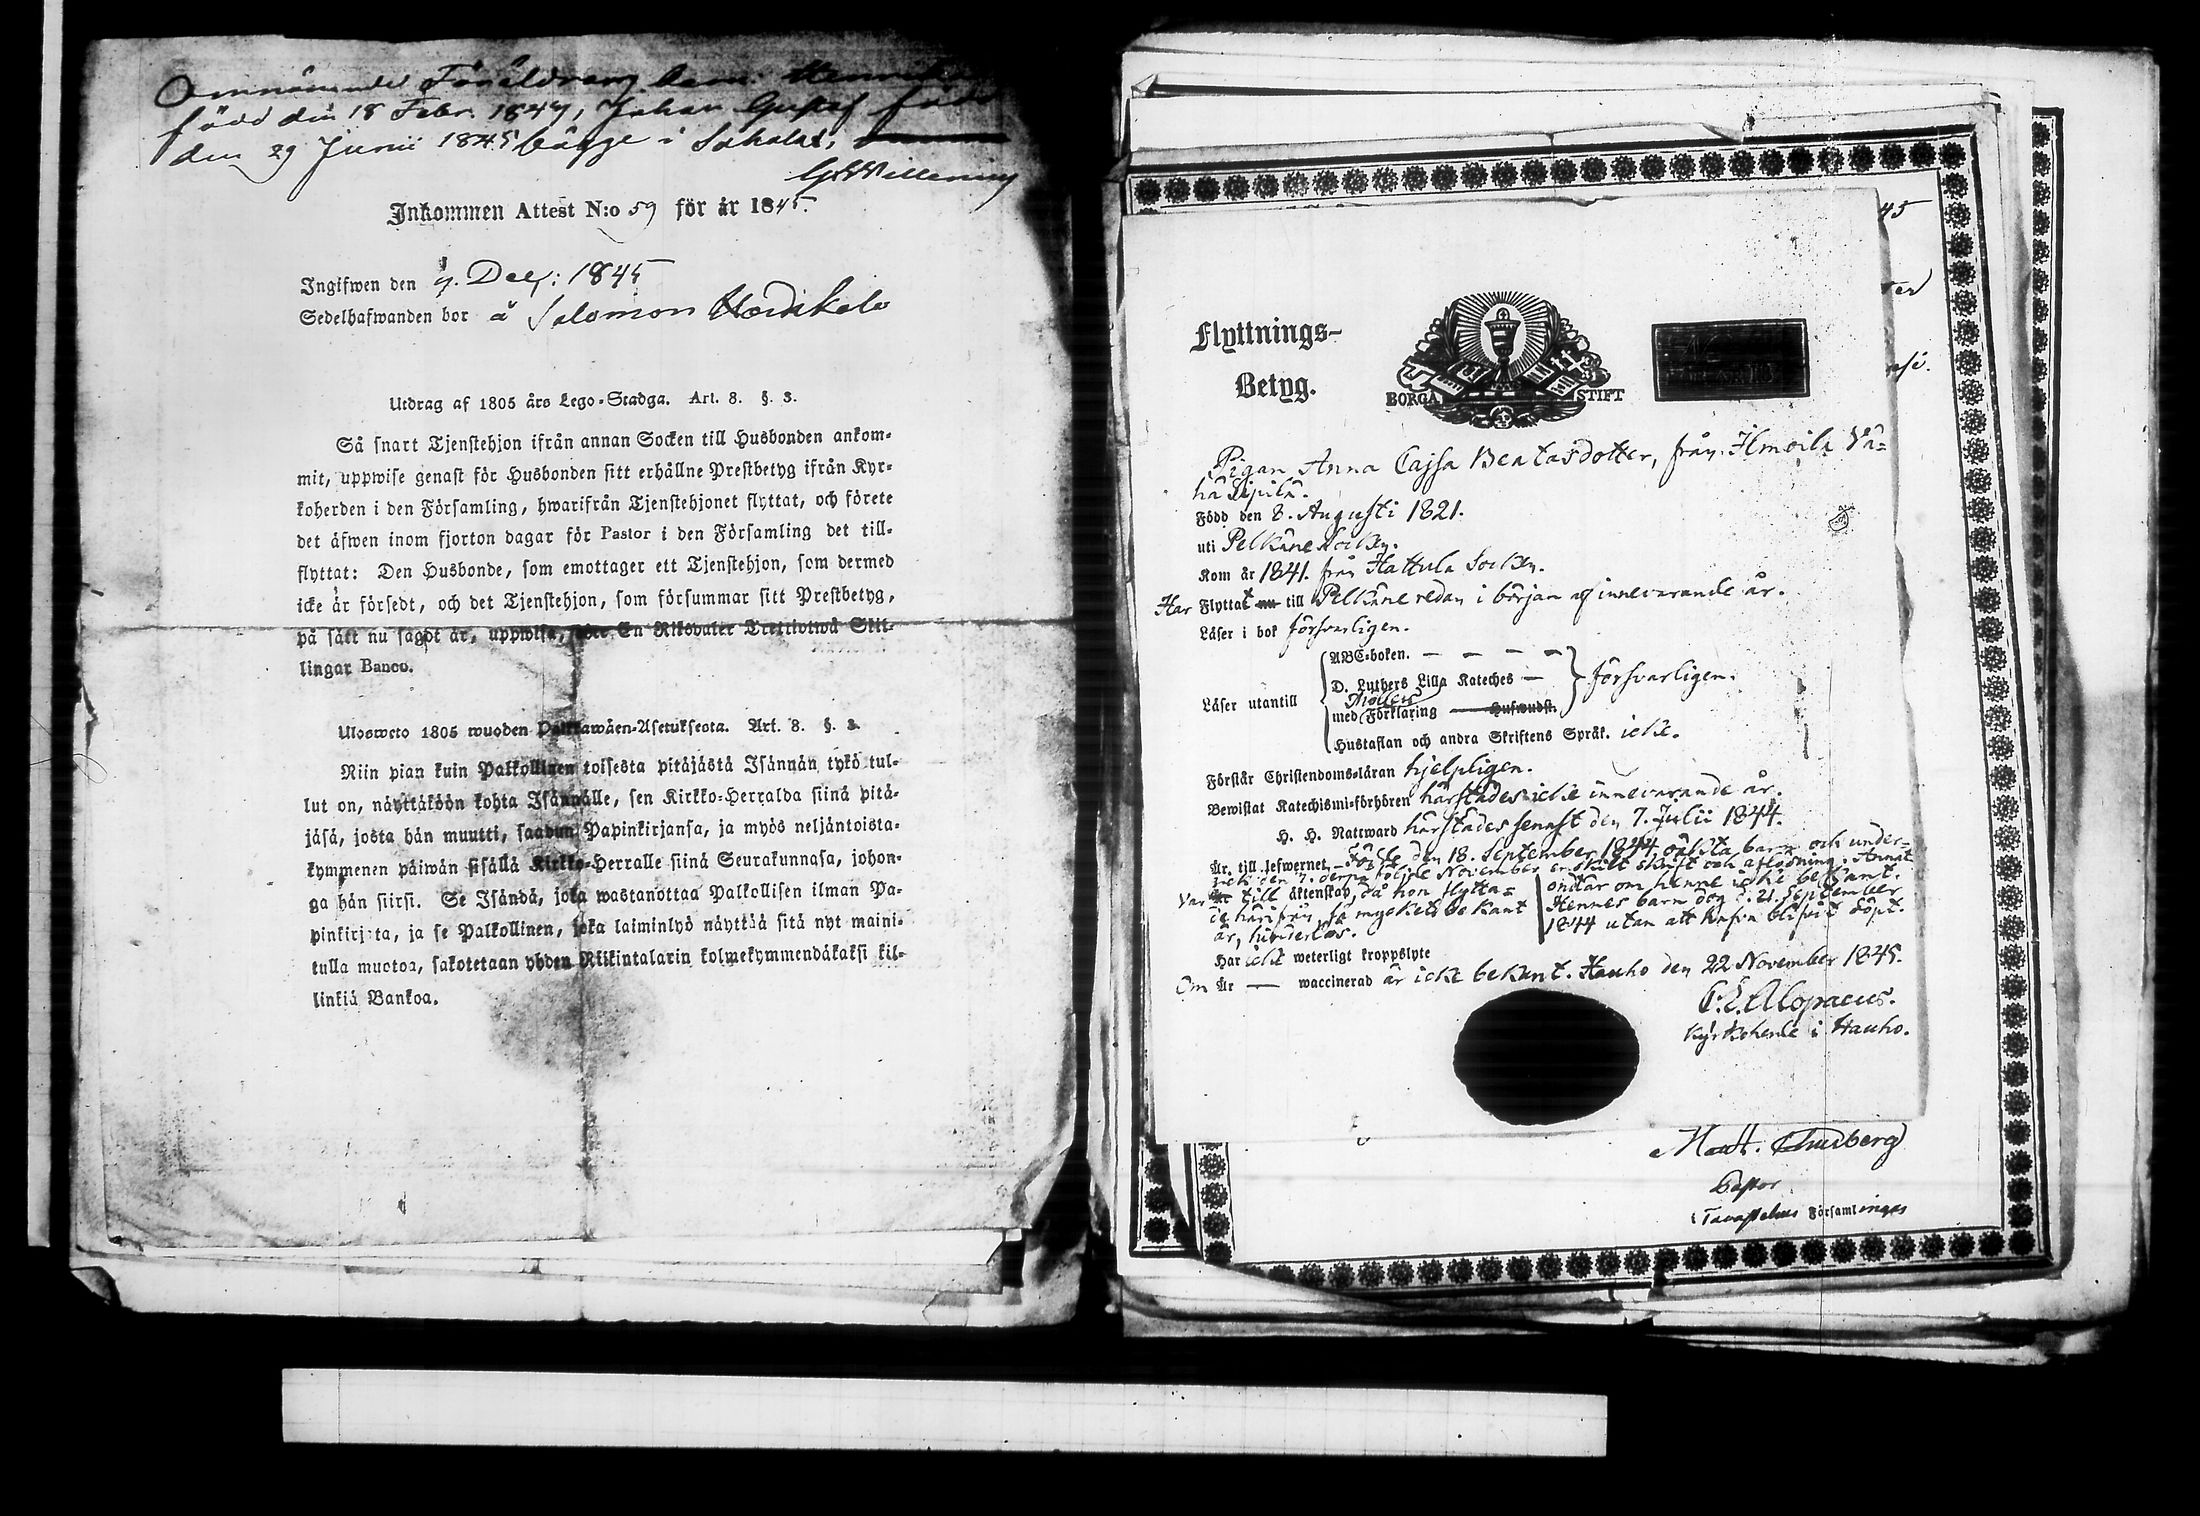 Omnämnde Föräldrars barn: Henrika
född den 18 Febr. 1844, Johan Gustaf född
den 29 Junii 1845 bägge i Sahalax,
Inkommen Attest N:o 59 för år 1845.
Ingifwen den 9. Dec: 1845
Sedelhafwanden bor å Salomon
Utdrag af 1805 års Lego-Stadga. Art. 8. §. 3.
Så snart Tjenstehjon ifrån annan Socken till Husbonden ankom-
mit, uppwise genast för Husbonden sitt erhållne Prestbetyg ifrån Kyr-
koherden i den Församling, hwarifrån Tjenstehjonet flyttat, och förete
det äfwen inom fjorton dagar för Pastor i den Församling det till-
flyttat: Den Husbonde, som emottager ett Tjenstehjon, som dermed
icke är försedt, och det Tjenstehjon, som försummar sitt Prestbetyg,
på sätt nu sagdt är, uppwisa, böte En Riksdaler Trettiotwå Skil-
lingar Banco.
Ulosweto 1805 wuoden Palkkawäen-Asetuksesta. Art. 8. §. 3.
Niin pian kuin Palkollinen toisesta pitäjästä Isännän tykö tul-
lut on, näyttäköön kohta Isännälle, sen Kirkko-Herralda siinä pitä-
jäsä, josta hän muutti, saadun Papinkirjansa, ja myös neljäntoista-
kymmenen päiwän sisällä Kirkko-Herralle siinä Seurakunnasa, johon-
ga hän siirsi. Se Isändä, joka wastanottaa Palkollisen ilman Pa-
pinkirjata, ja se Palkollinen, joka laiminlyö näyttää sitä nyt maini-
tulla muotoa, sakotetaan yhden Riikintalarin kolmekymmendäkaksi kil-
linkiä Bankoa.
45
Flyttnings-
Betyg.
BORGÅ STIFT
Pigan Anna Cajsa Beatasdotter, från Ilmoila Vä-
hä Sipilä.
Född den 8. Augusti 1821.
uti Pelkäne Socken.
Kom år 1841. från Hattula Socken.
Har Flyttat nu till Pelkäne redan i början af innevarande år.
Läser i bok försvarligen.
Läser utantill
ABC-boken. — — — —
D. Luthers Lilla Kateches — försvarligen.
med Möllers Förklaring Hufwudst.
Hustaflan och andra Skriftens Språk. icke.
Förstår Christendoms-läran hjelpligen.
Bewistat Katechismi-förhören härstädes icke innevarande år.
H. H. Nattward härstädes senast den 7. Julii 1844.
Är till lefwernet, — Födde den 18. September 1844 oäkta barn och under-
gick den 7. derpå följde November enskilt skrift och aflösning. Annat
ondar om henne icke bekant.
Hennes barn dog d. 21. September
1844 utan att hafva blifvit döpt.
Var till äktenskap, då hon flytta-
de härifrån, så mycket bekant
är, hinderlös.
Har icke weterligt kroppslyte
Om Är — waccinerad är icke bekant. Hauho den 22 November 1845.
Alopaeus.
Kyrkoherde i Hauho.
Pastor
i Tavastehus Församlingar